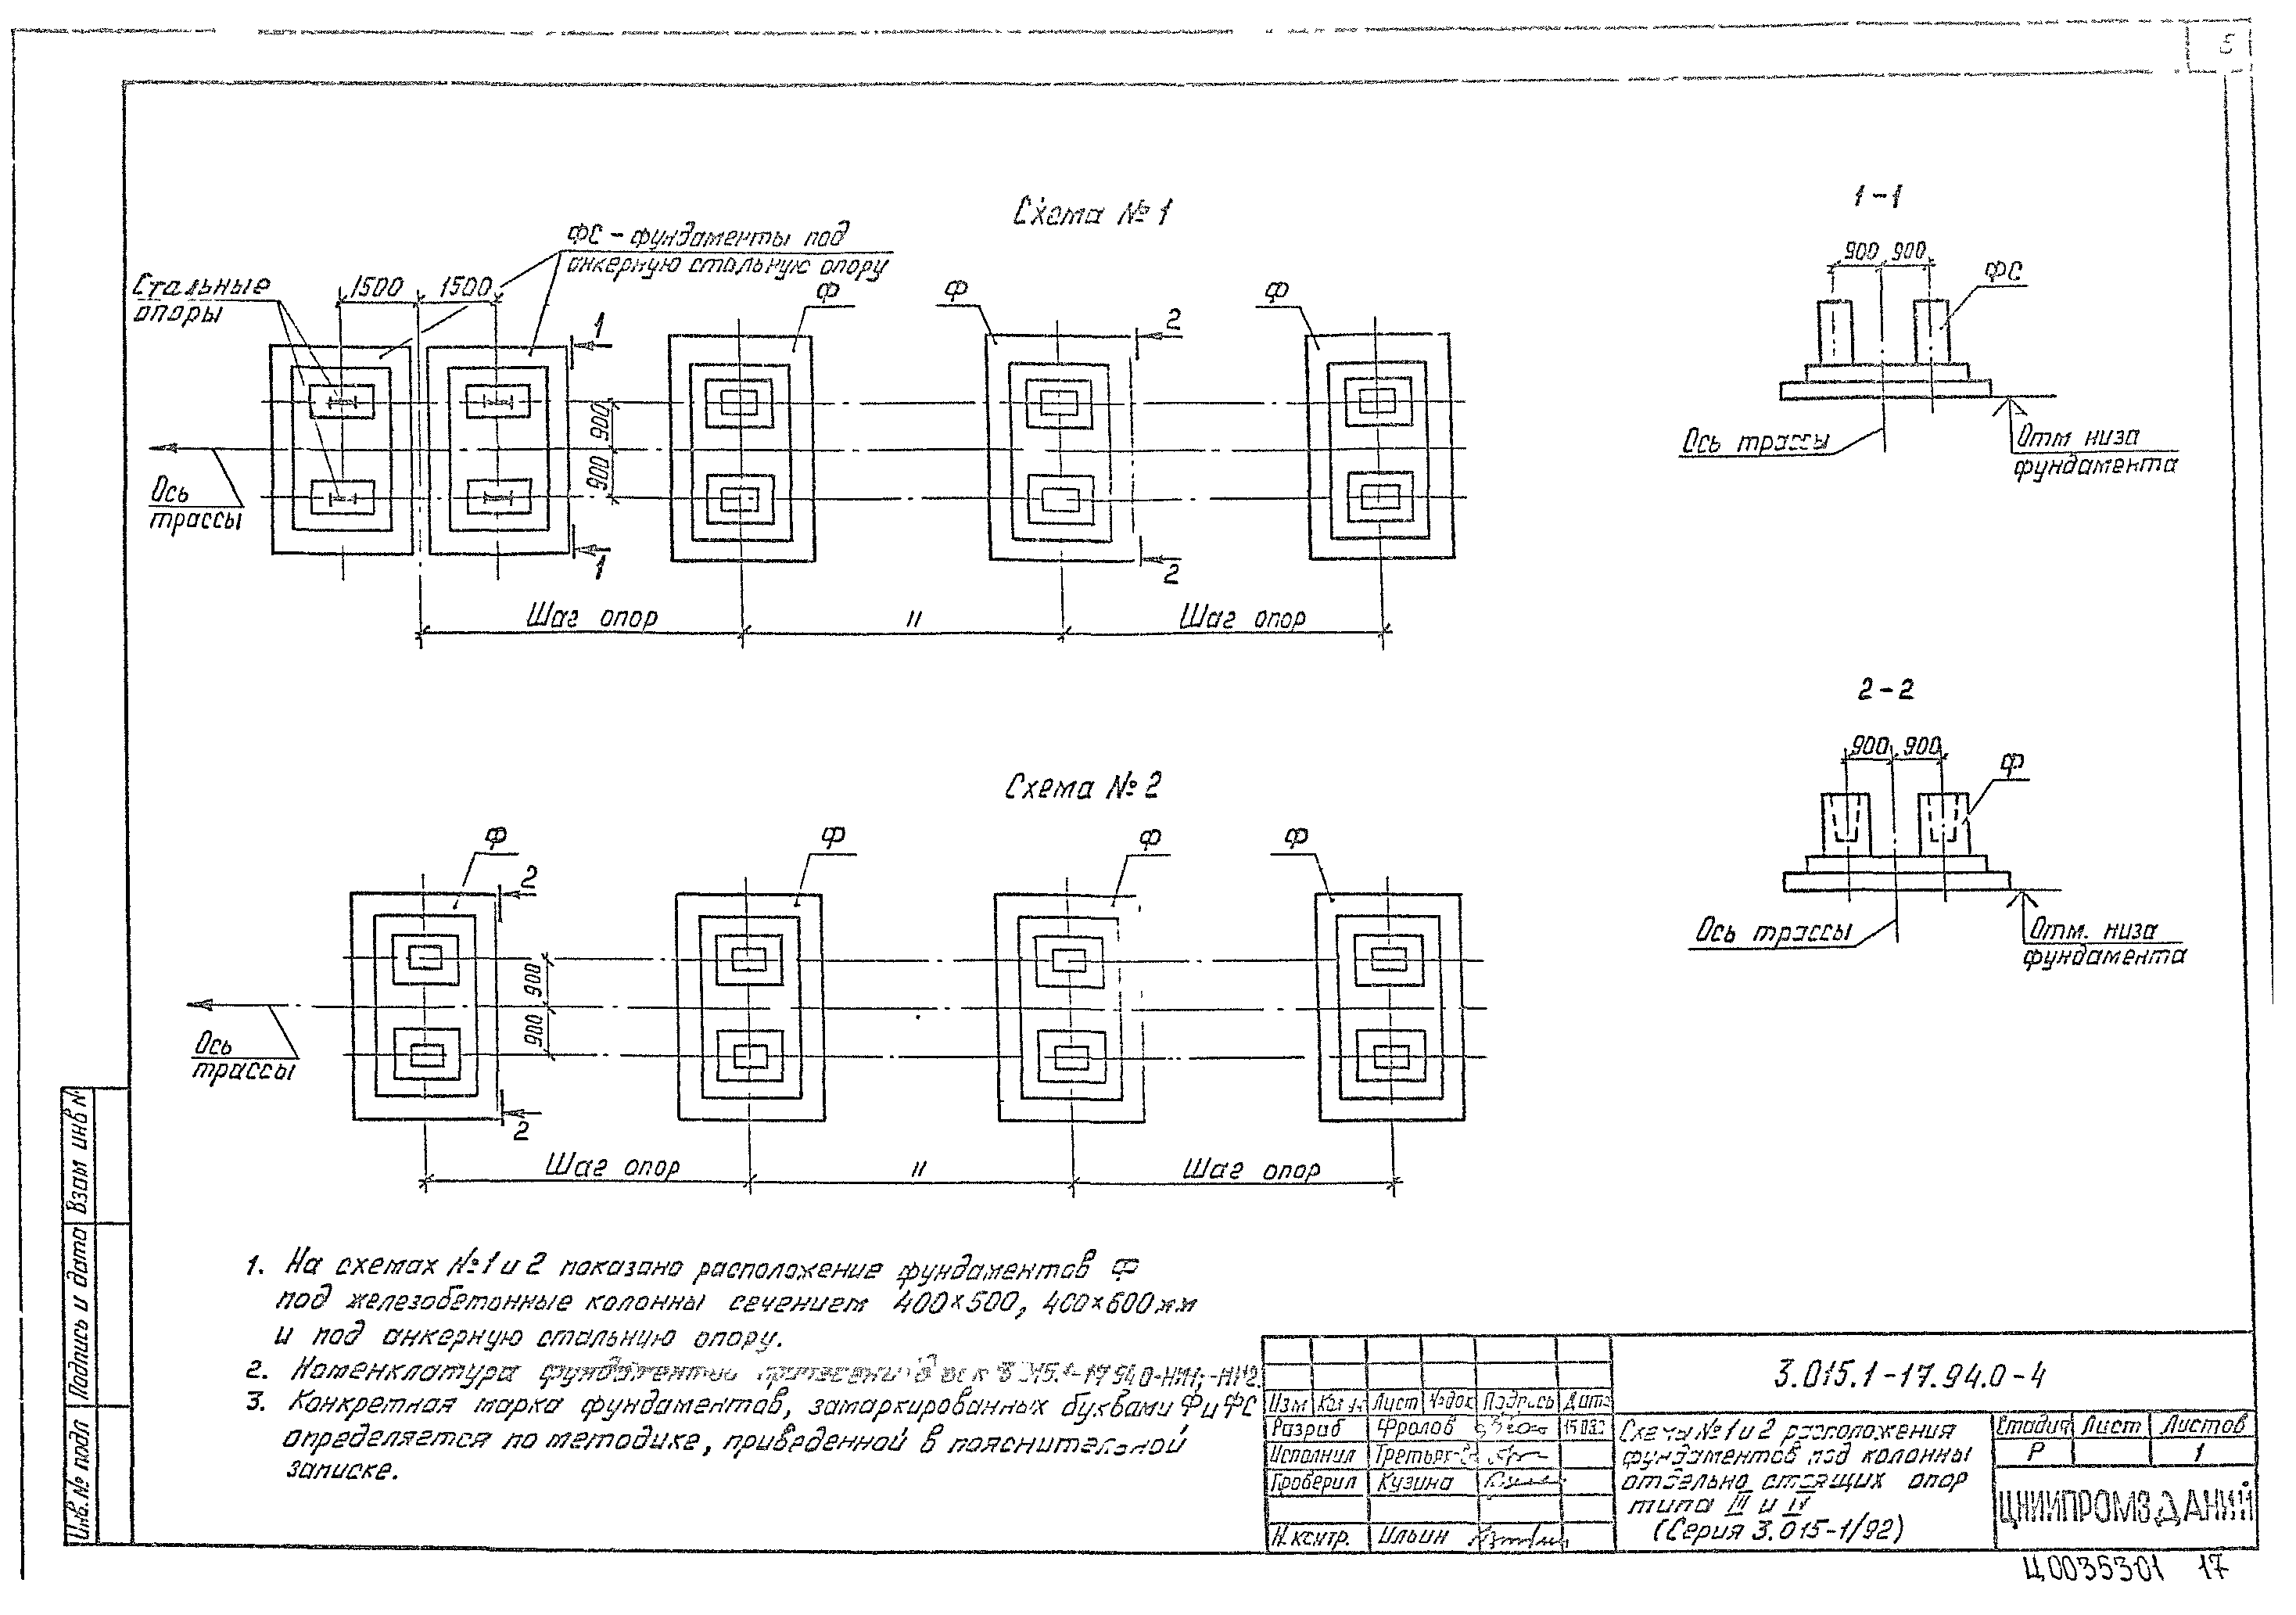 5
Схема № 1
1-1
ФС - фундаменты под
анкерную стальную опору
Стальные
опоры
1500
1500
Ф
Ф
Ф
1
2
900
900
ФС
900
900
Ось
трассы
Ось трассы
Отм низа
фундамента
1
2
Шаг опор
"
Шаг опор
2-2
Схема № 2
900
900
Ф
Ф
Ф
Ф
Ф
2
900
900
Ось трассы
Отм. низа
фундамента
Ось
трассы
2
Шаг опор
"
Шаг опор
1. На схемах №1 и 2 показано расположение фундаментов Ф
под железобетонные колонны сечением 400×500, 400×600мм
и под анкерную стальную опору.
2. Номенклатура фундаментов
3. Конкретная марка фундаментов, замаркированных буквами Ф и ФС
определяется по методике, приведенной в пояснительной
записке.
3.015.1-17.94.0-4
Изм Кол уч Лист №док Подпись Дата
Разраб Фролов
Исполнил
Проверил Кузина
Н.контр. Ильин
Схемы №1 и 2 расположения
фундаментов под колонны
отдельно стоящих опор
типа III и IV
(Серия 3.015-1/92)
Стадия Лист Листов
Р 1
ЦНИИПРОМЗДАНИЙ
Инв. № подл
Подпись и дата
Взам инв №
Ц0035301 17